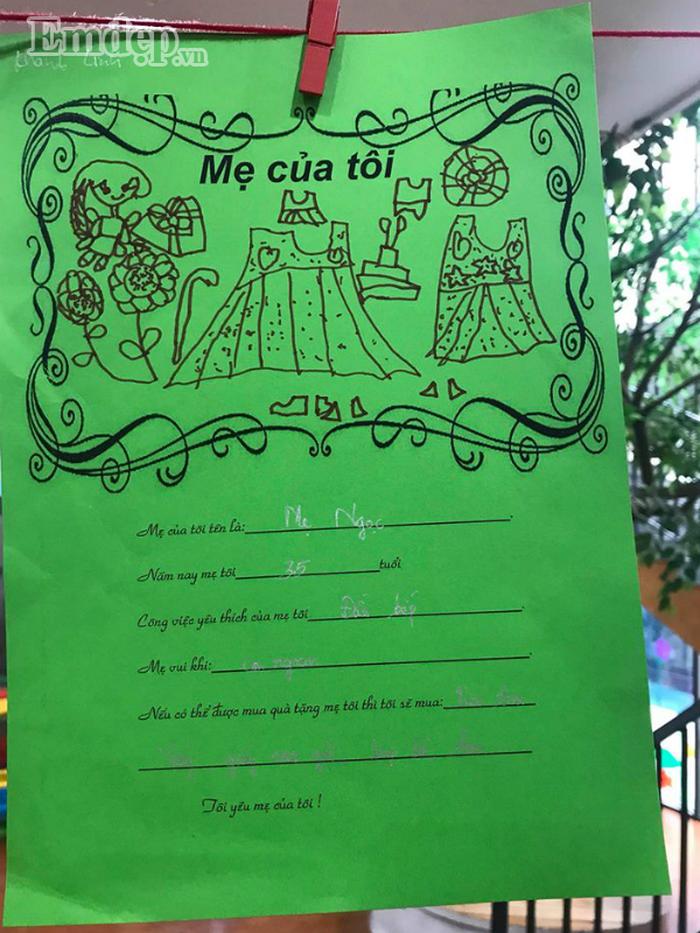 Emdep.vn
Khánh Linh
Mẹ của tôi
Mẹ của tôi tên là: Mẹ Ngọc
Năm nay mẹ tôi 35 tuổi
Công việc yêu thích của mẹ tôi Đầu bếp
Mẹ vui khi: con ngoan
Nếu có thể được mua quà tặng mẹ tôi thì tôi sẽ mua:
Tôi yêu mẹ của tôi !